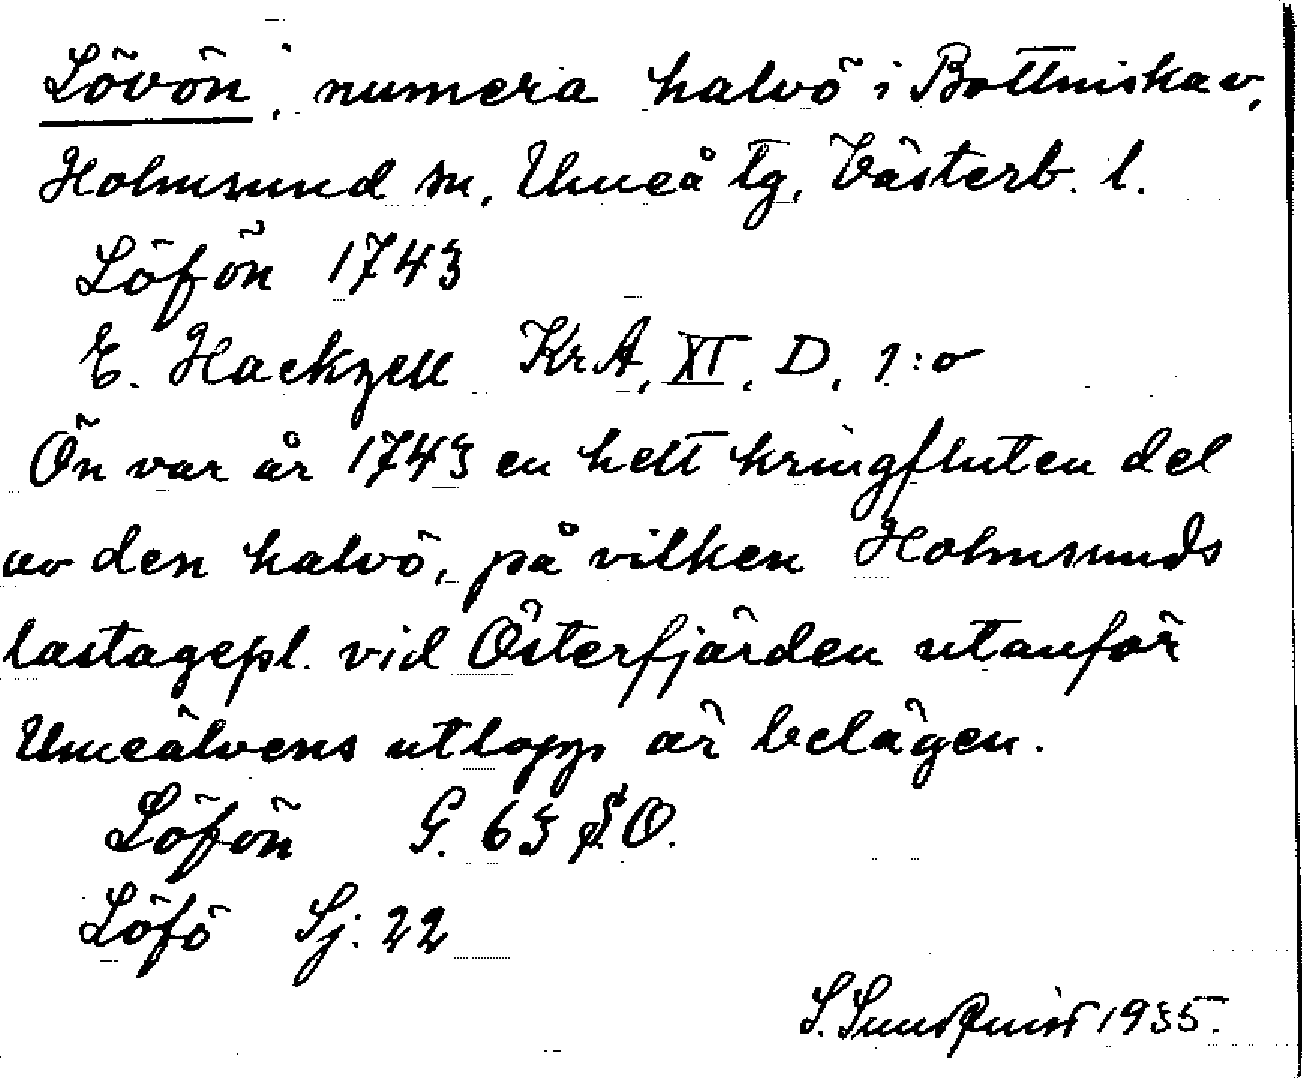 Lövön, numera halvö i Bottniska v,
Holmsund sn, Umeå tg, Västerb. l.
Löfön 1743
E. Hackzell KrA, XI, D, 1:o
Ön var år 1743 en helt kringfluten del
av den halvö, på vilken Holmsunds
lastagepl. vid Österfjärden utanför
Umeälvens utlopp är belägen.
Löfön G. 63 S.O.
Löfö Sj. 22
S. Sundquist 1935.